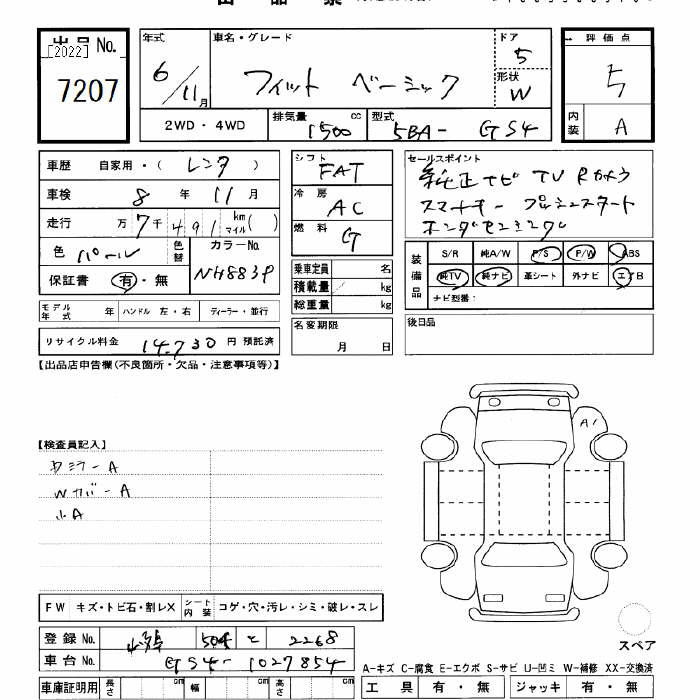 出品No. [2022]
7207
年式 6/11月
車名・グレード フィット ベーシック
ドア 5
形状 W
評価点 5
内装 A
2WD・4WD
排気量 1500 cc
型式 5BA- GS4
車歴 自家用・(レンタ)
車検 8年 11月
走行 万 7千491 km マイル( )
色 パール 色替
カラーNo. NH883P
保証書 有・無
シフト FAT
冷房 AC
燃料 G
セールスポイント
純正ナビ TV Rカメラ
スマートキー プッシュスタート
ホンダセンシング
装備品 S/R 純A/W P/S P/W ABS
純TV 純ナビ 革シート 外ナビ エアB
ナビ型番:
乗車定員 名
積載量 kg
総重量 kg
モデル年式 年 ハンドル 左・右 ディーラー・並行
名変期限 月 日
後日品
リサイクル料金 14,730 円 預託済
【出品店申告欄(不良箇所・欠品・注意事項等)】
A1
【検査員記入】
カミラーA
WカバーA
小A
FW キズ・トビ石・割レX シート内装 コゲ・穴・汚レ・シミ・破レ・スレ
登録No. 504 と 2268
車台No. GS4-1027854
スペア
A-キズ C-腐食 E-エクボ S-サビ U-凹ミ W-補修 XX-交換済
車庫証明用 長さ cm 幅 cm 高さ cm
工具 有・無 ジャッキ 有・無